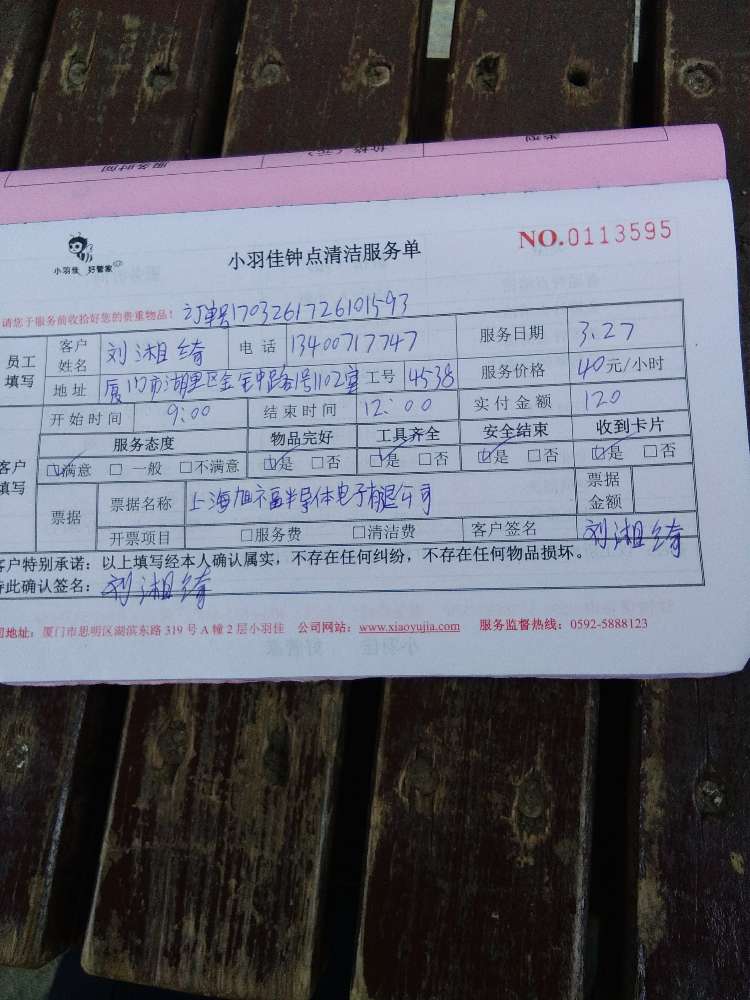 服务时间 价格（元） 类别
小羽佳 好管家
小羽佳钟点清洁服务单
NO.0113595
请您于服务前收拾好您的贵重物品！ 订单号1703261726101593
员工填写 客户姓名 刘湘绮 电话 13400717747 服务日期 3.27
地址 厦门市湖里区金 中路 1号1102室 工号 4538 服务价格 40元/小时
开始时间 9:00 结束时间 12:00 实付金额 120
客户填写 服务态度 物品完好 工具齐全 安全结束 收到卡片
☑满意 □一般 □不满意 ☑是 □否 ☑是 □否 ☑是 □否 ☑是 □否
票据 票据名称 上海旭福半导体电子有限公司 票据金额
开票项目 □服务费 □清洁费 客户签名 刘湘绮
客户特别承诺：以上填写经本人确认属实，不存在任何纠纷，不存在任何物品损坏。
此确认签名：刘湘绮
地址：厦门市思明区湖滨东路 319 号 A 幢 2 层小羽佳 公司网站：www.xiaoyujia.com 服务监督热线：0592-5888123